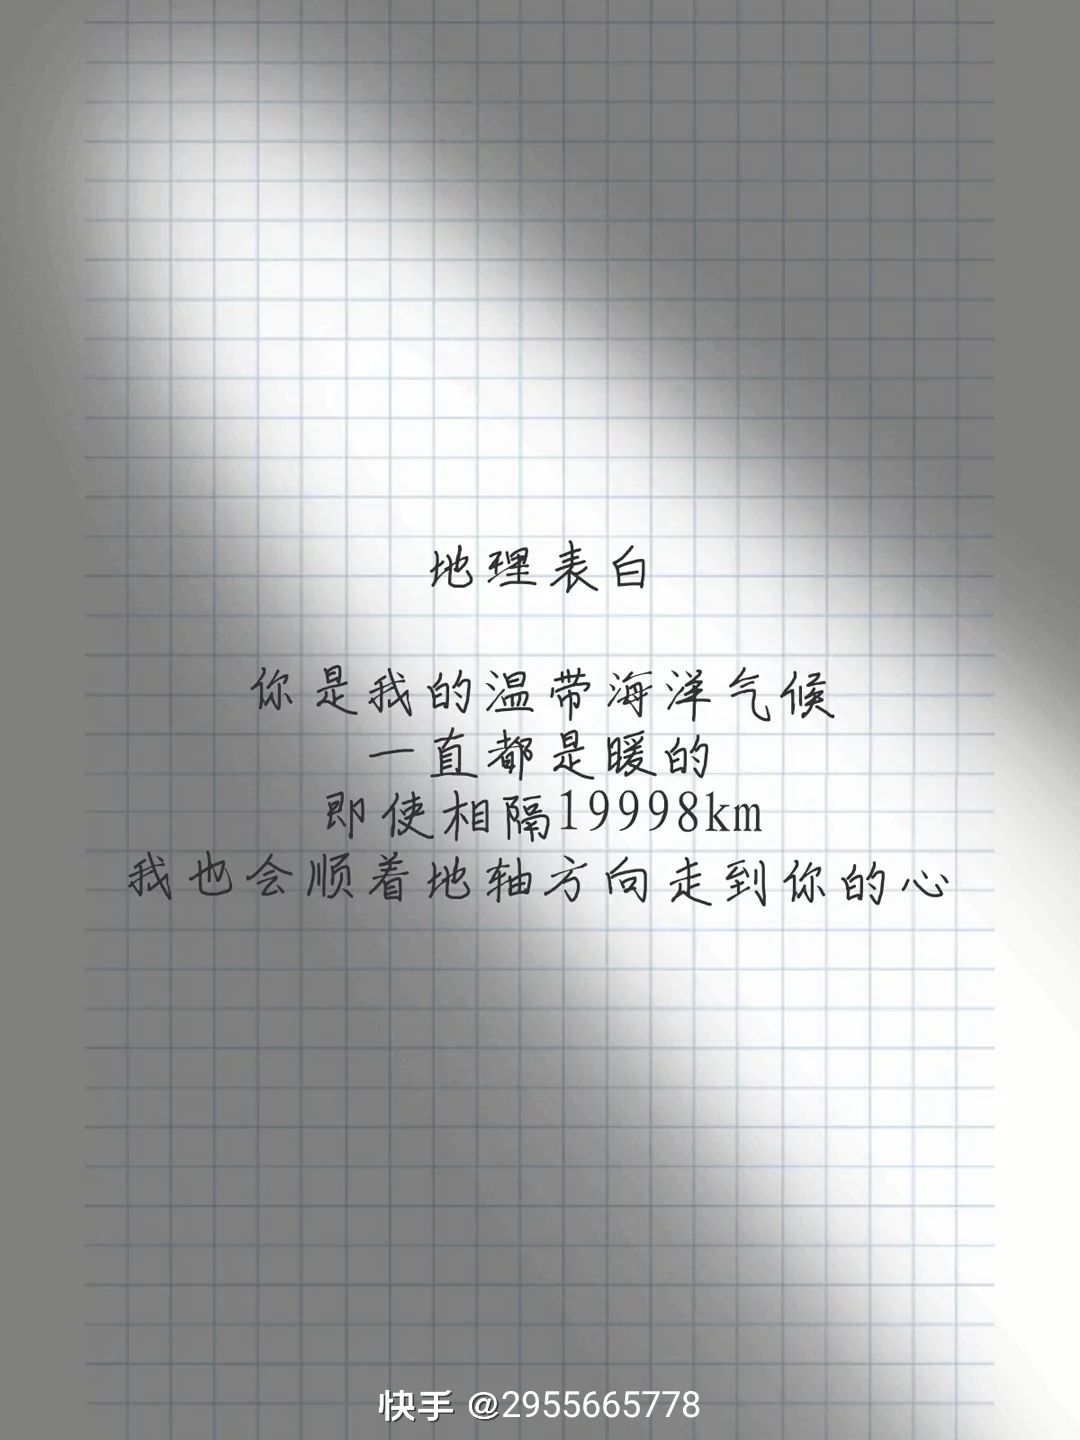 地理表白
你是我的温带海洋气候
一直都是暖的
即使相隔19998km
我也会顺着地轴方向走到你的心
快手 @2955665778